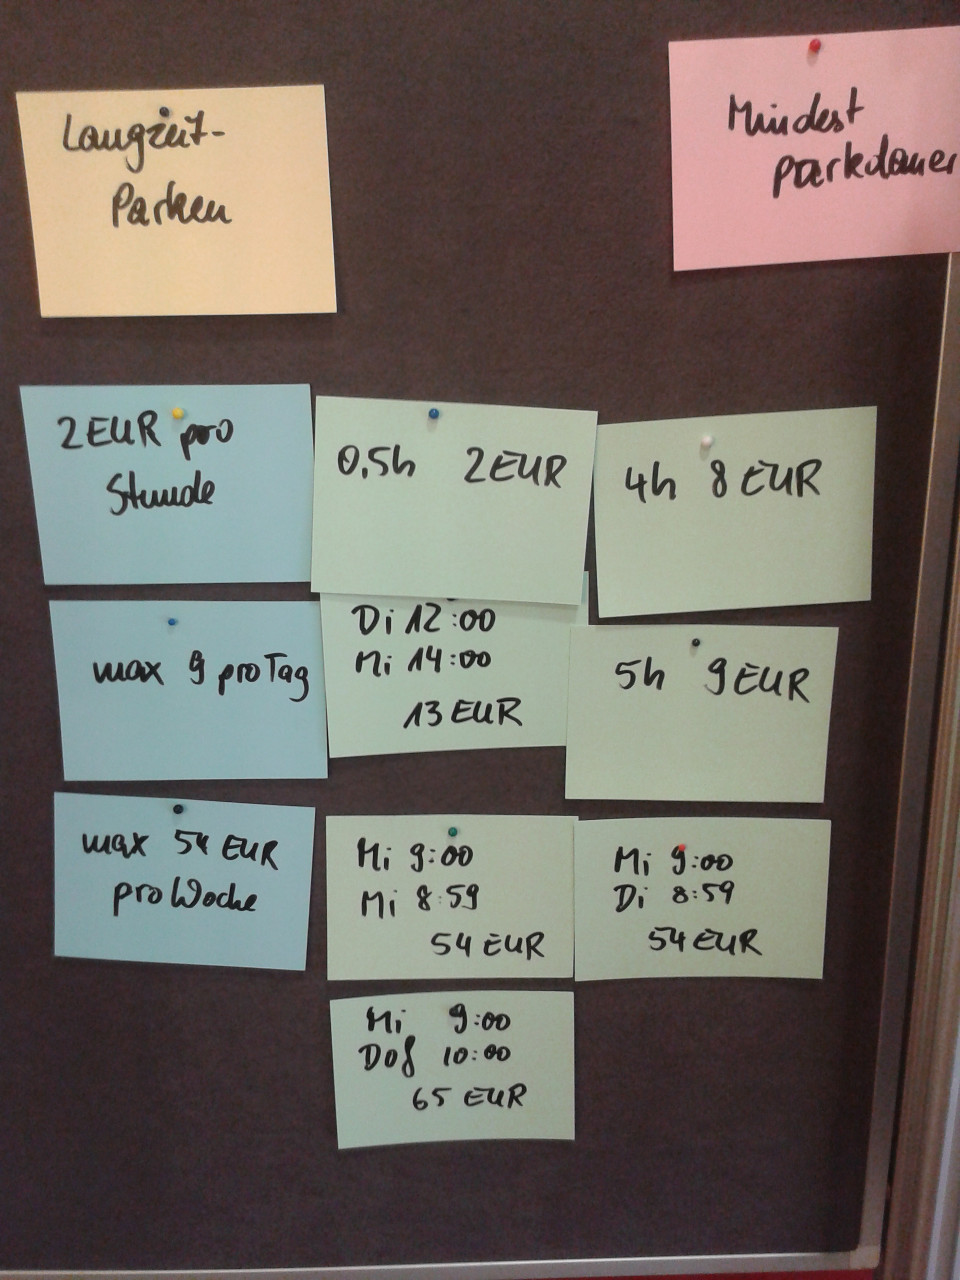 Langzeit-
Parken
Mindest
parkdauer
2 EUR pro
Stunde
0,5h 2 EUR
4h 8 EUR
max 9 pro Tag
Di 12:00
Mi 14:00
13 EUR
5h 9 EUR
max 54 EUR
pro Woche
Mi 9:00
Mi 8:59
54 EUR
Mi 9:00
Di 8:59
54 EUR
Mi 9:00
Do 10:00
65 EUR